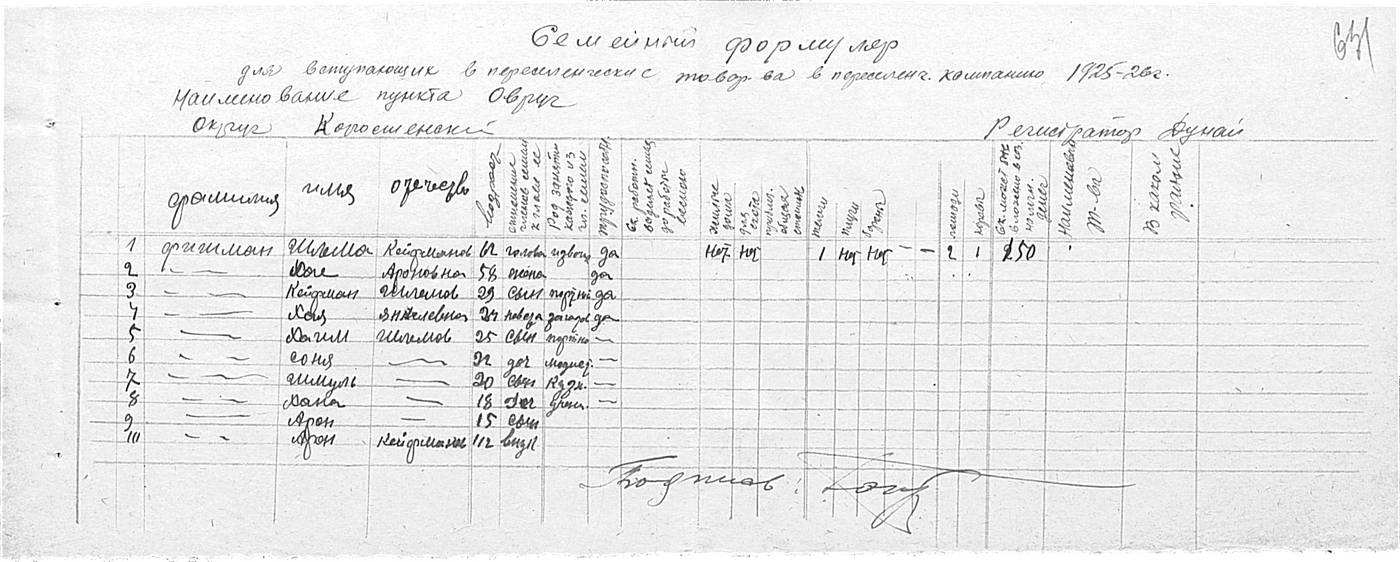 631
Семейный формуляр
для вступающих в переселенческие товар-ва в переселенч. кампанию 1925-26г.
Наименование пункта Овруч
Округ Коростенский Регистратор Дунай
фамилия имя отечество возраст отношение членов семьи к главе ее Род занятий каждого из чл. семьи трудоспособн. жилые дома для скота телеги плуги лошади коровы Ск. может быть вложено в воз. налич. денег Наименован. т-ва В каком районе
1 Фишман Шлема Кейфманов 62 голова извозч да Нет Нет 1 Нет Нет — — 2 1 250
2 — — Хае Ароновна 58 жена да
3 — — Кейфман Шлемов 29 сын портной да
4 — — Хая Янкелевна 24 да
5 — Хаим Шлемов 25 сын портно —
6 — — Соня — 22 доч модист. —
7 — — Шмуль — 20 сын Кузн. —
8 — — Хана — 18 доч —
9 — Арон — 15 сын
10 — — Арон Кейфманов 1/12 внук
Подпись: